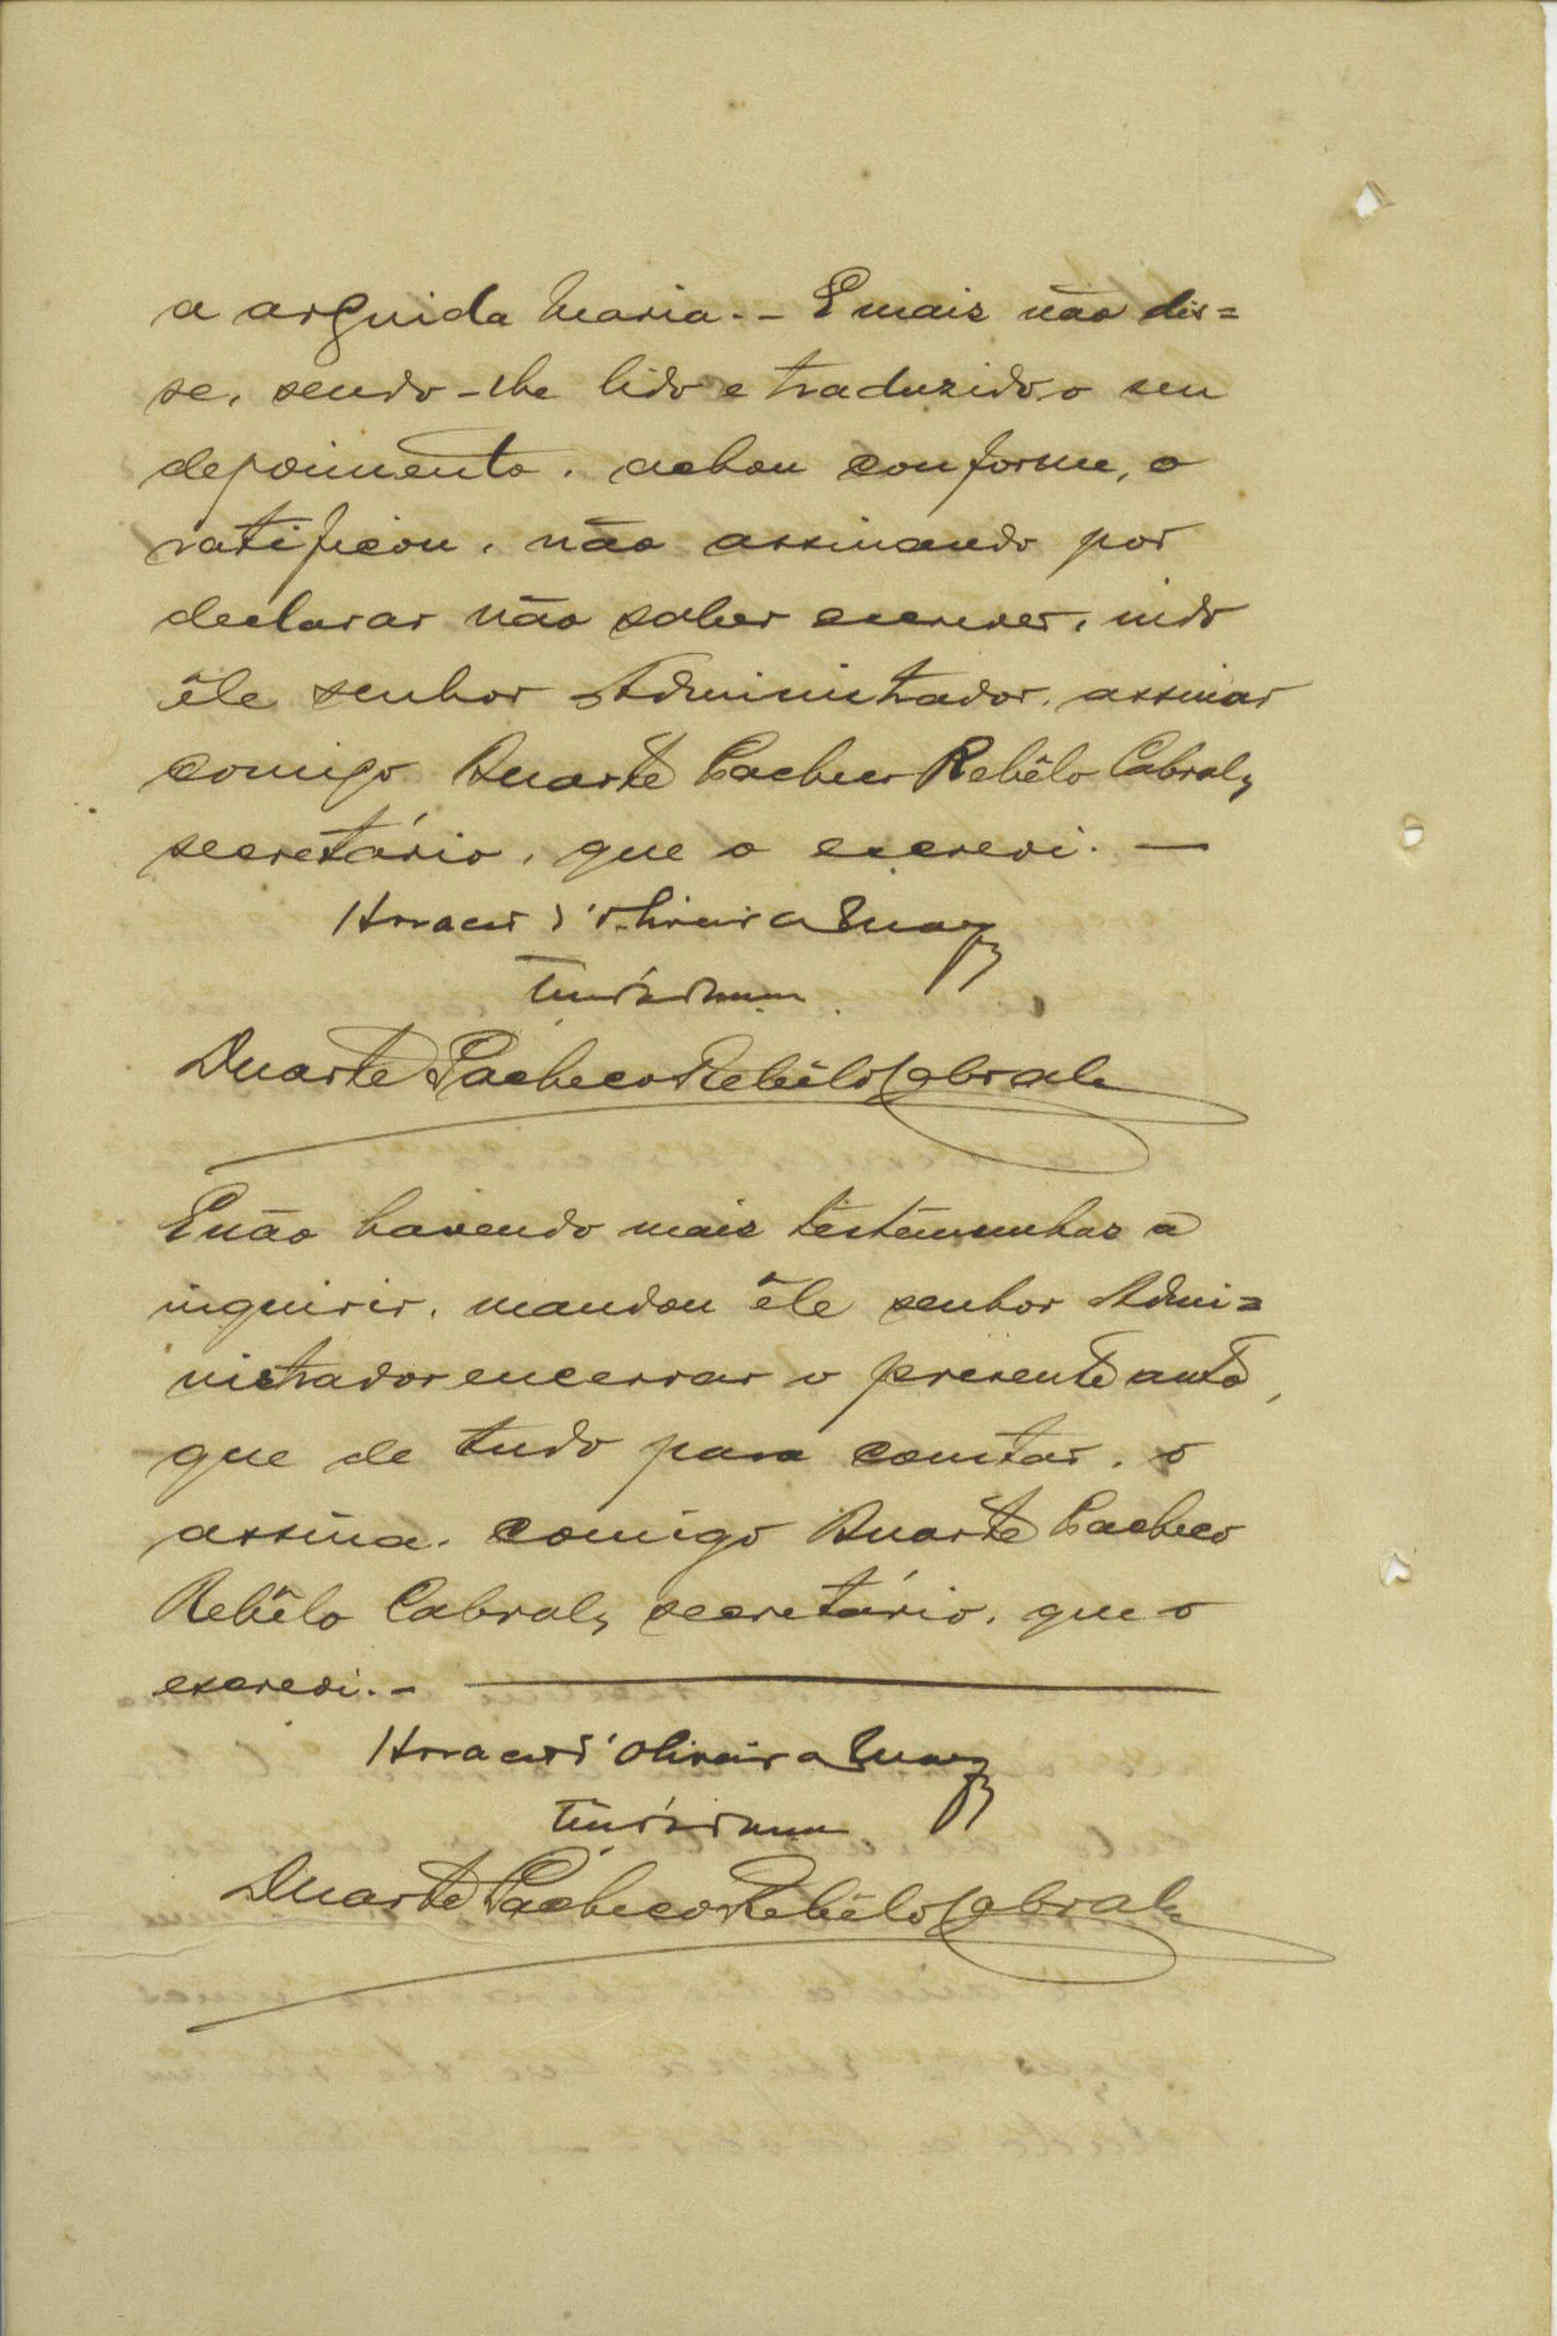 a arguida Maria.- E mais não dis=
se, sendo-lhe lido e traduzido o seu
depoimento, achou conforme, o
ratificou, não assinando por
declarar não saber escrever, indo
êle senhor Administrador, assinar
comigo Duarte Pacheco Rebêlo Cabral,
secretário, que o escrevi. —
Horacio d'Oliveira
Duarte Pacheco Rebêlo Cabral
E não havendo mais testemunhas a
inquirir, mandou êle senhor Admi=
nistrador encerrar o presente auto,
que de tudo para constar, o
assina, comigo Duarte Pacheco
Rebêlo Cabral, secretário, que o
escrevi.-
Horacio d'Oliveira
Duarte Pacheco Rebêlo Cabral